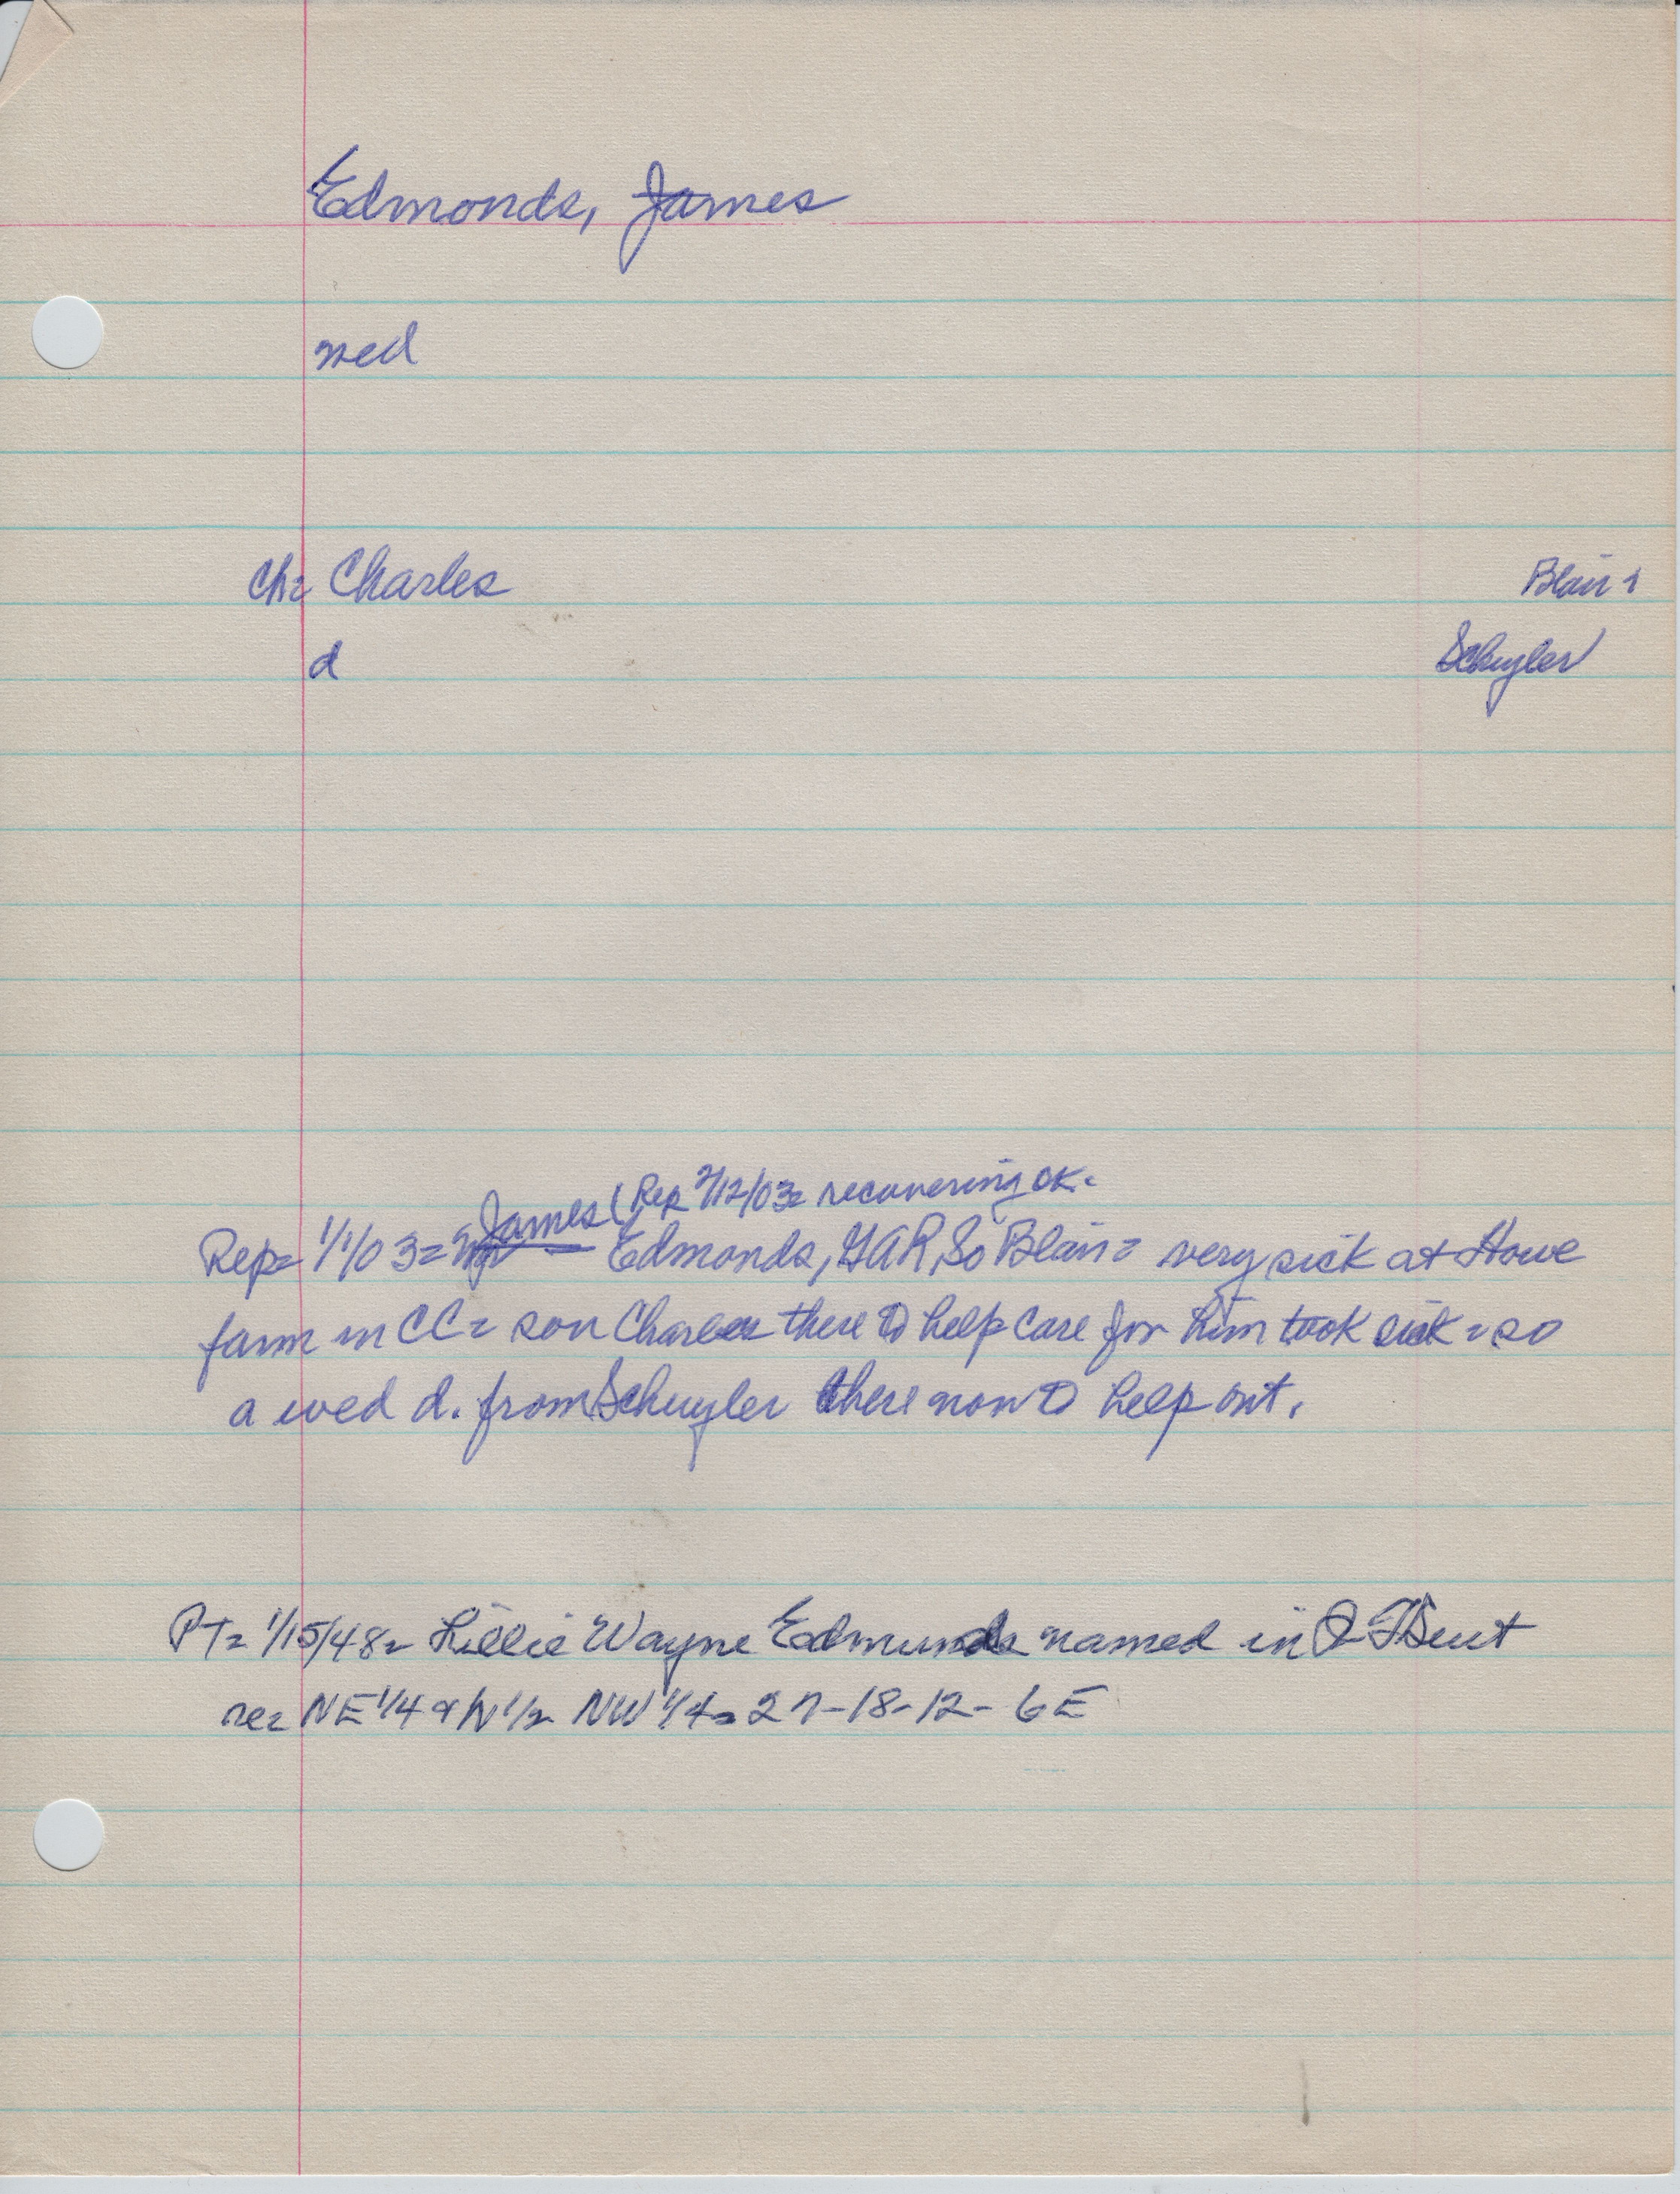 Edmonds, James
med
ch= Charles Blair =
d Schuyler
(Rep 2/12/03= recovering ok.
Rep= 1/1/03= James Edmonds, GAR, So Blair = very sick at Howe
farm in CC = son Charles there to help care for him took sick = so
a wed d. from Schuyler there now to help out.
PT= 1/15/48= Lillie Wayne Edmunds named in Q T Suit
re= NE 1/4 & N 1/2 NW 1/4= 27-18-12-6E